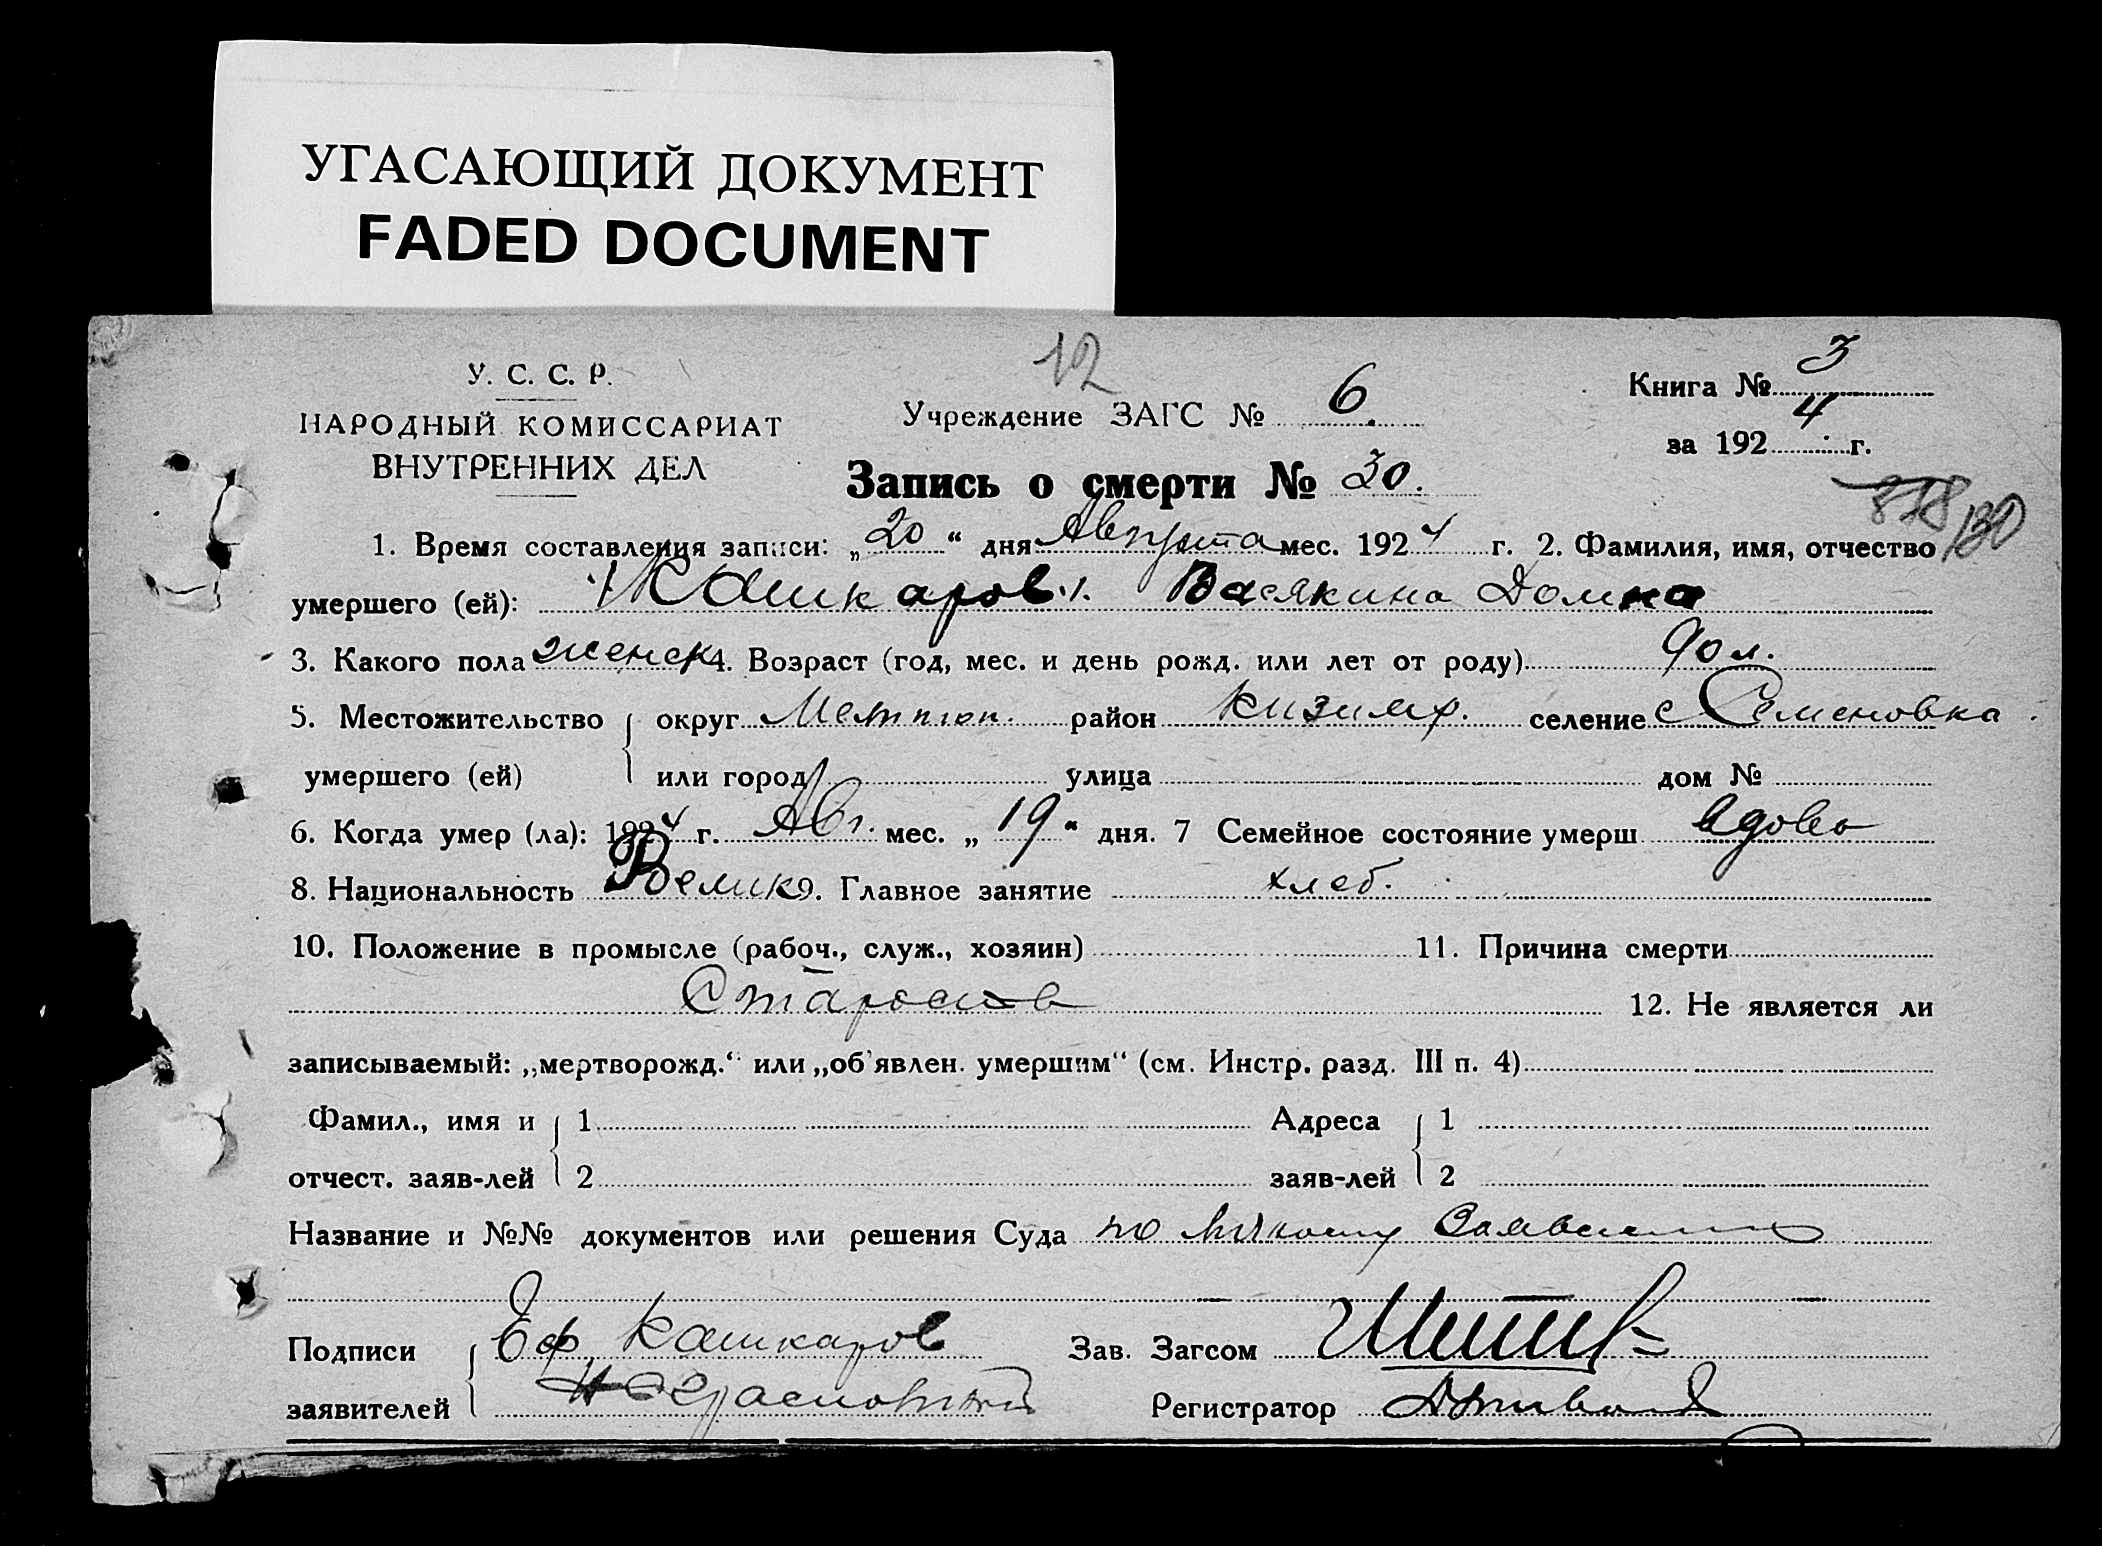 УГАСАЮЩИЙ ДОКУМЕНТ
FADED DOCUMENT
12
У. С. С. Р.
НАРОДНЫЙ КОМИССАРИАТ
ВНУТРЕННИХ ДЕЛ
Учреждение ЗАГС № 6
Книга № 3
за 1924 г.
Запись о смерти № 30.
878 130
1. Время составления записи: „20“ дня Августа мес. 1924 г. 2. Фамилия, имя, отчество
умершего (ей): Кашкаров. Васякина Домна
3. Какого пола женск 4. Возраст (год, мес. и день рожд. или лет от роду) 90 л.
5. Местожительство округ Мелитоп. район Кизияр. селение с Семеновка
умершего (ей) или город улица дом №
6. Когда умер (ла): 1924 г. Авг. мес. „19“ дня. 7 Семейное состояние умерш вдова
8. Национальность Велик 9. Главное занятие хлеб.
10. Положение в промысле (рабоч., служ., хозяин) 11. Причина смерти
12. Не является ли
записываемый: „мертворожд.“ или „об'явлен. умершим“ (см. Инстр. разд. III п. 4)
Фамил., имя и 1 Адреса 1
отчест. заяв-лей 2 заяв-лей 2
Название и №№ документов или решения Суда по личному Заявлению
Подписи Еф. Кашкаров Зав. Загсом
заявителей Регистратор